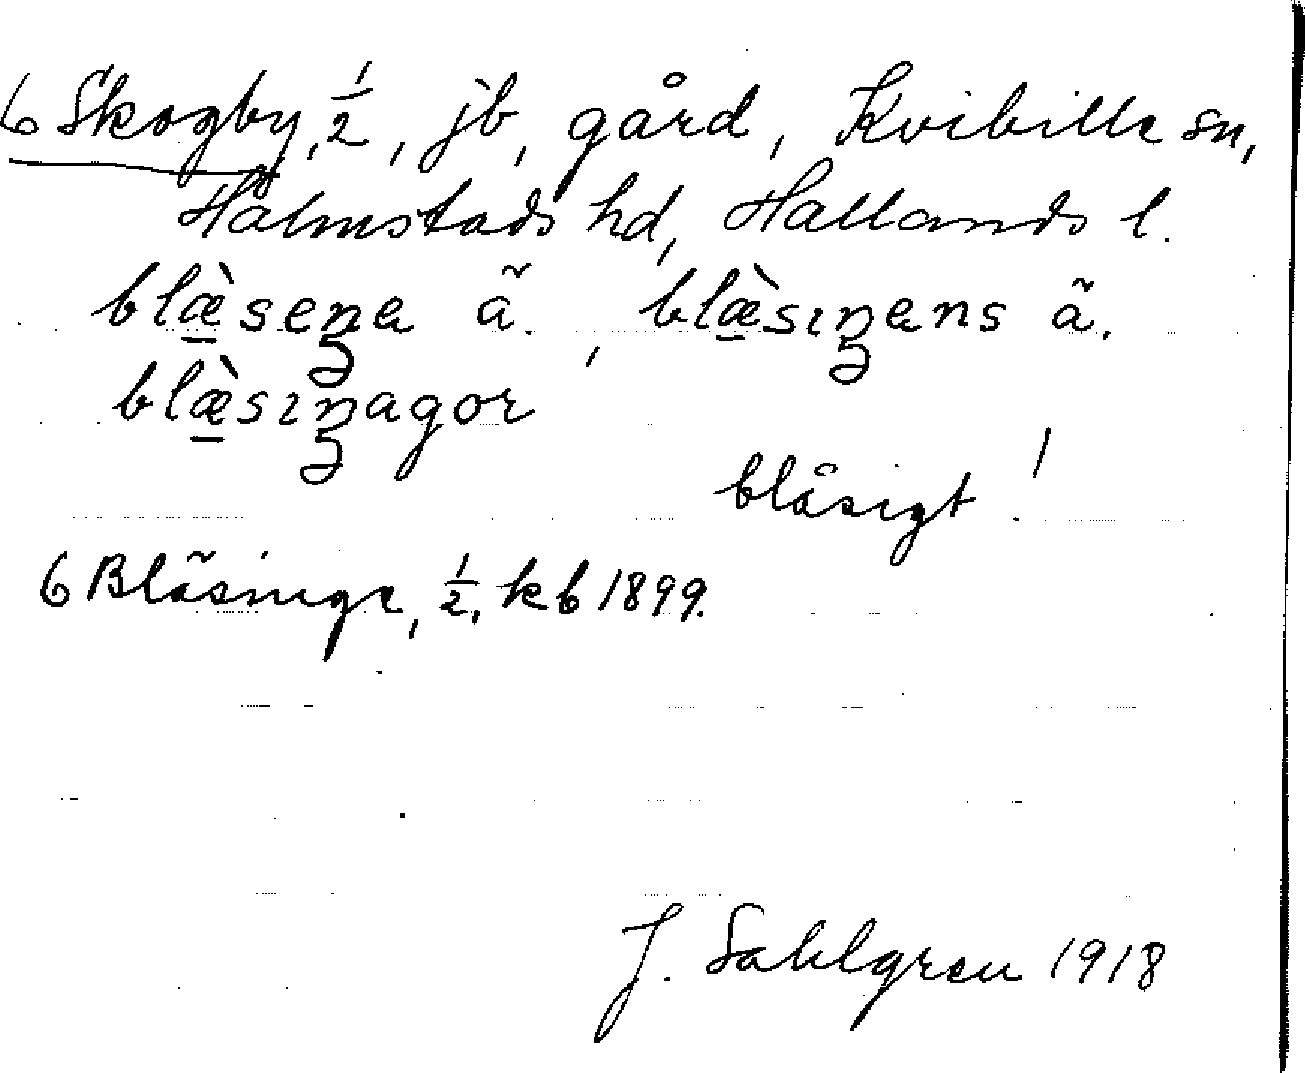 6 Skogby, 1/2, jb, gård, Kvibille sn,
Halmstads hd, Hallands l.
blæ̱̀seŋa ã., blæ̱̀sıŋans ã.
blæ̱̀sıŋagor
blåsigt!
6 Blåsinge, 1/2, kb 1899.
J. Sahlgren 1918